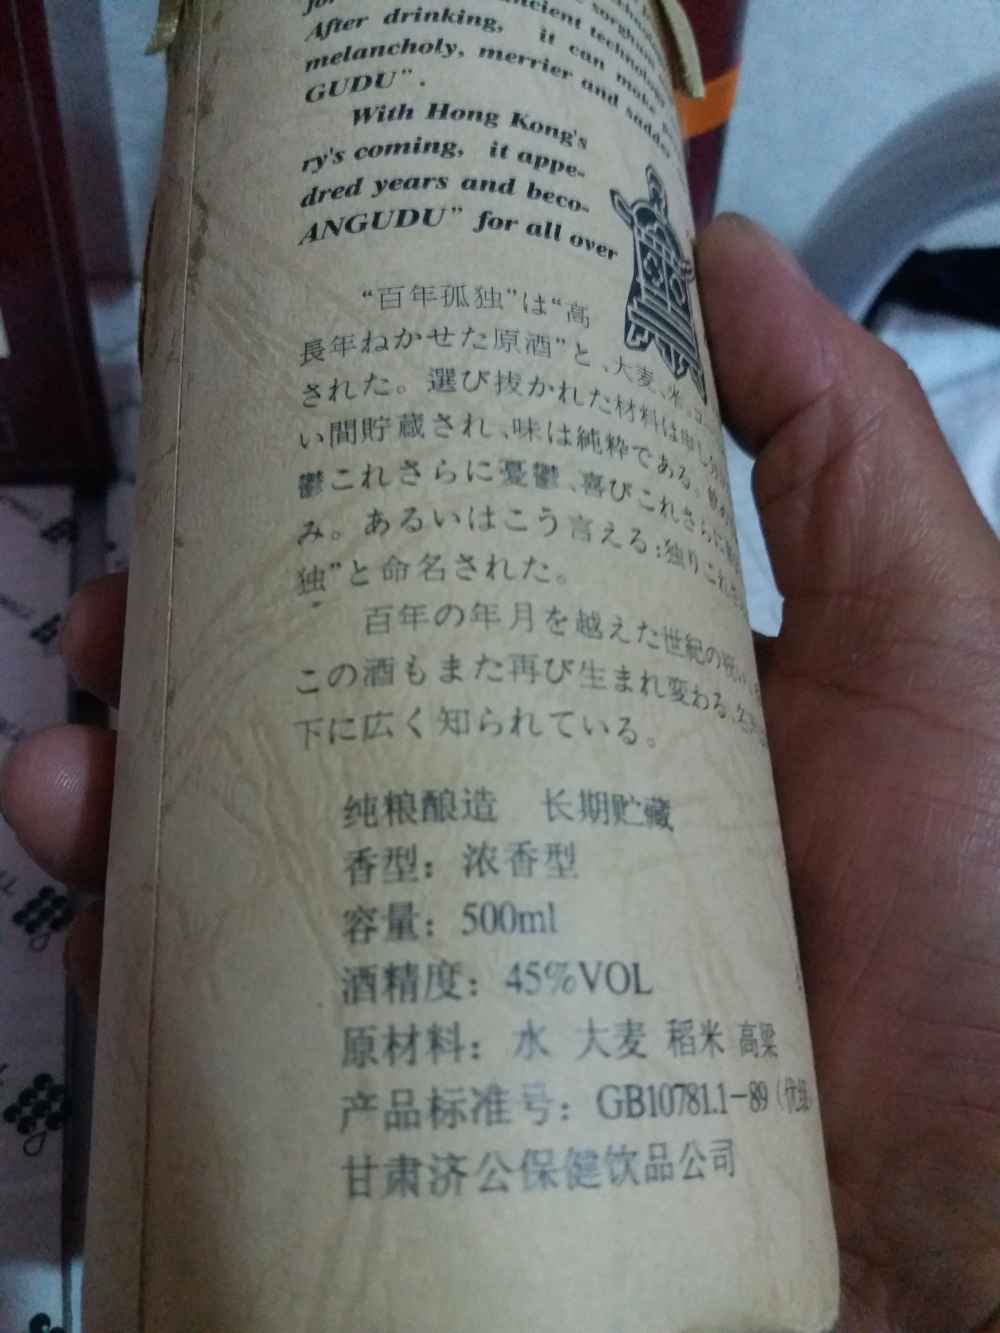 ancient technology
After drinking, it can make
melancholy, merrier and sadder
GUDU".
With Hong Kong's
ry's coming, it appe-
dred years and beco-
ANGUDU" for all over
“百年孤独”は“高
長年ねかせた原酒”と、大麦、米、コ
された。選び抜かれた材料は申し分
い間貯蔵され、味は純粋である。飲め
鬱これさらに憂鬱、喜びこれさらに
み。あるいはこう言える:独りこれ
独”と命名された。
百年の年月を越えた世紀の祝い
この酒もまた再び生まれ変わる。
下に広く知られている。
纯粮酿造 长期贮藏
香型：浓香型
容量：500ml
酒精度：45%VOL
原材料：水 大麦 稻米 高粱
产品标准号：GB10781.1-89（优级
甘肃济公保健饮品公司